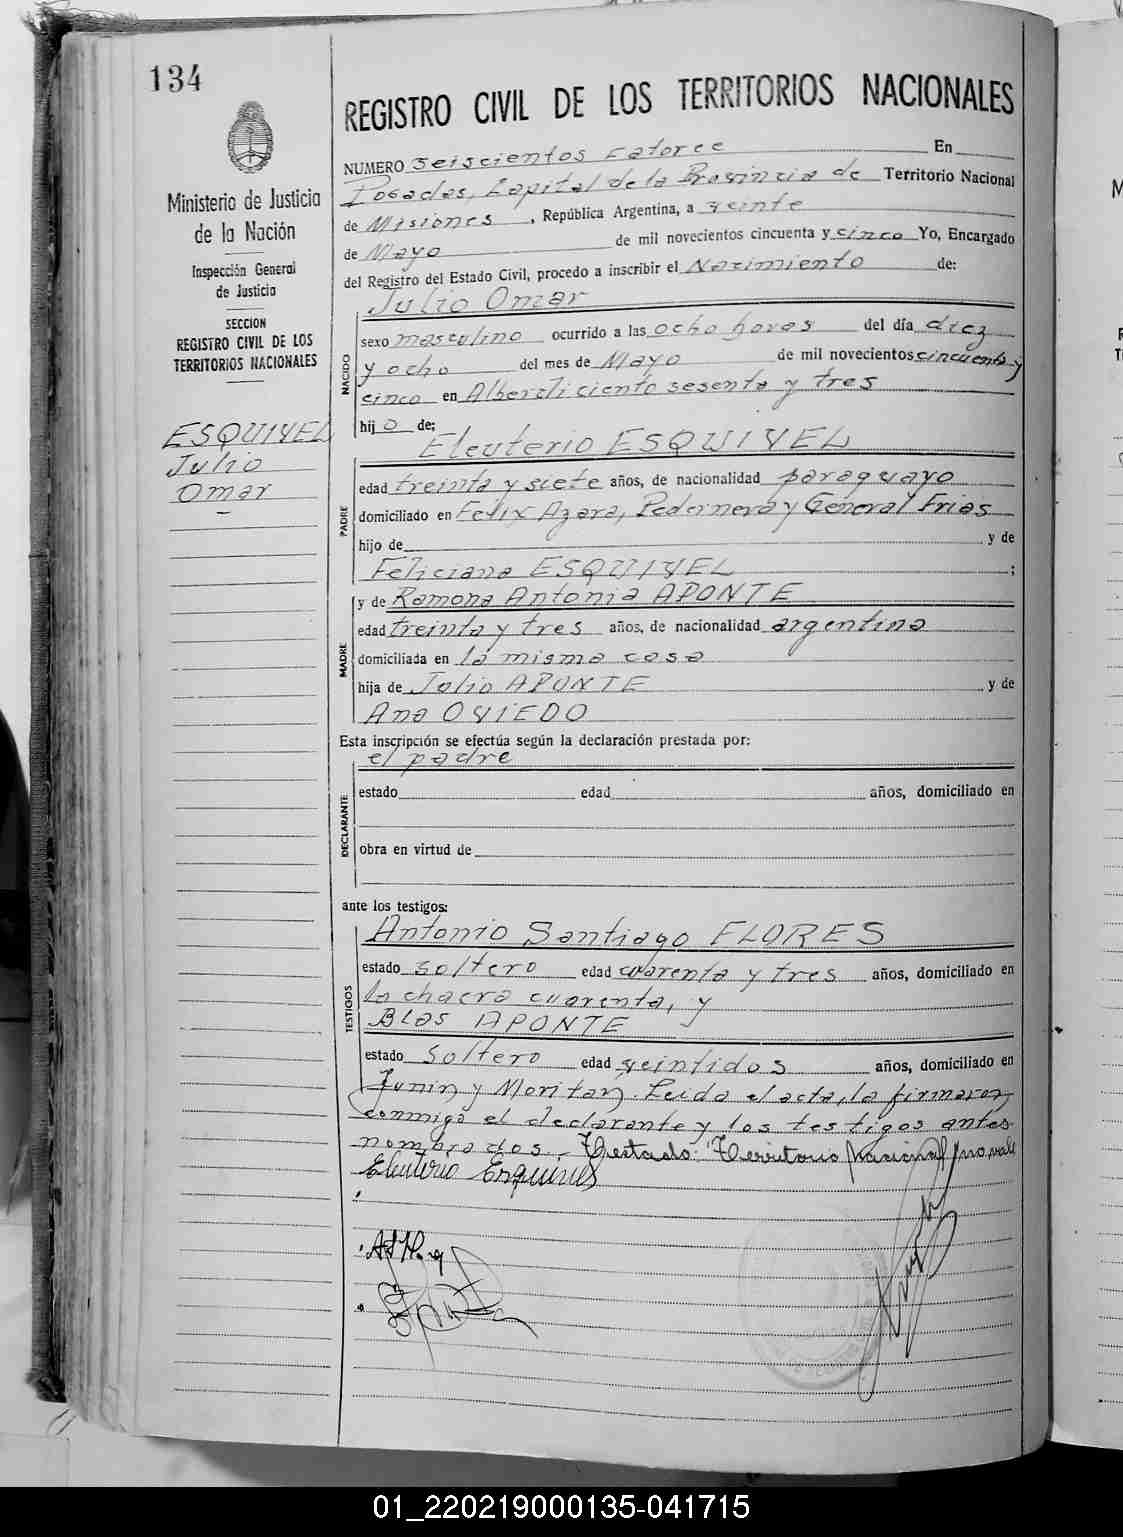 134
Ministerio de Justicia
de la Nación
Inspección General
de Justicia
SECCION
REGISTRO CIVIL DE LOS
TERRITORIOS NACIONALES
ESQUIVEL
Julio
Omar
REGISTRO CIVIL DE LOS TERRITORIOS NACIONALES
NUMERO seiscientos catorce En
Posadas, Capital de la Provincia de Territorio Nacional
de Misiones, República Argentina, a veinte
de Mayo de mil novecientos cincuenta y cinco Yo, Encargado
del Registro del Estado Civil, procedo a inscribir el Nacimiento de:
Julio Omar
NACIDO
sexo masculino ocurrido a las ocho horas del día diez
y ocho del mes de Mayo de mil novecientos cincuenta y
cinco en Alberdi ciento sesenta y tres
hijo de;
Eleuterio ESQUIVEL
PADRE
edad treinta y siete años, de nacionalidad paraguayo
domiciliado en Felix Azara, Pedernera y General Frias
hijo de y de
Feliciana ESQUIVEL ;
y de Ramona Antonia APONTE
MADRE
edad treinta y tres años, de nacionalidad argentina
domiciliada en la misma casa
hija de Julio APONTE y de
Ana OVIEDO
Esta inscripción se efectúa según la declaración prestada por:
el padre
DECLARANTE
estado edad años, domiciliado en
obra en virtud de
ante los testigos:
Antonio Santiago FLORES
TESTIGOS
estado soltero edad cuarenta y tres años, domiciliado en
la chacra cuarenta, y
Blas APONTE
estado soltero edad veintidos años, domiciliado en
Junin y Moritan. Leida el acta, la firmaron
conmigo el declarante y los testigos antes
nombrados.- Testado: Territorio Nacional, no vale
Eleuterio Esquivel
01_220219000135-041715